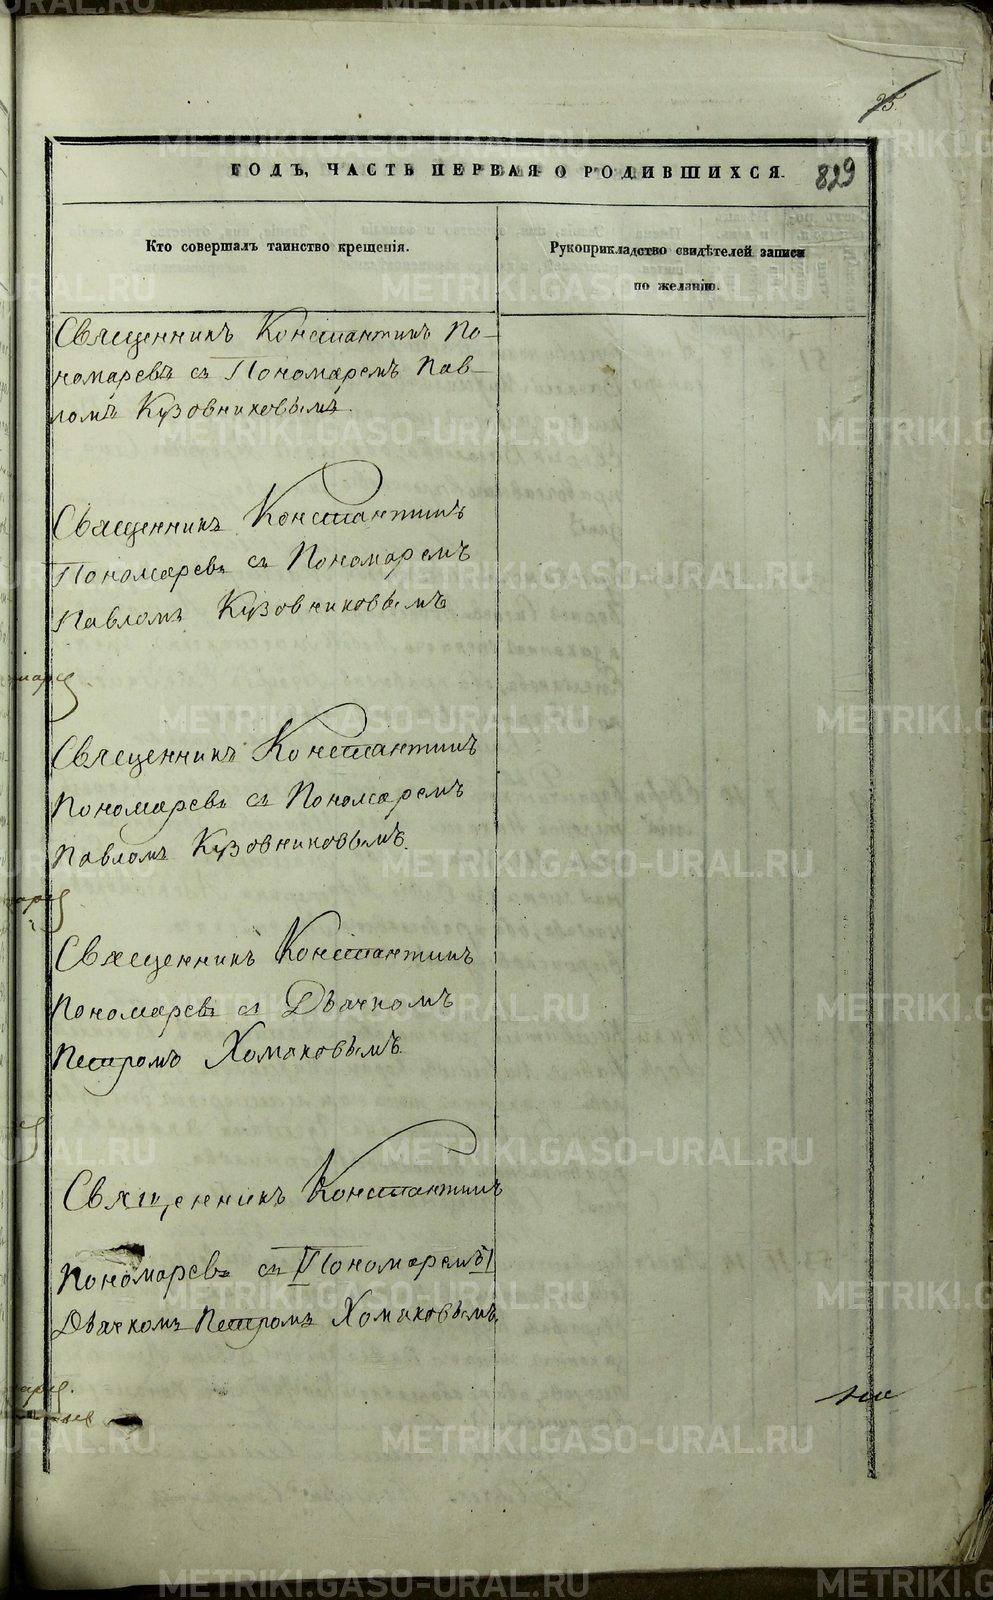 25
829
ГОДЪ, ЧАСТЬ ПЕРВАЯ О РОДИВШИХСЯ.
Кто совершалъ таинство крещенія.
Рукоприкладство свидѣтелей записи
по желанію.
Священникъ Константинъ По-
номаревъ съ Пономаремъ Пав-
ломъ Кузовниковымъ.
Священникъ Константинъ
Пономаревъ съ Пономаремъ
Павломъ Кузовниковымъ
Священникъ Константинъ
Пономаревъ съ Пономаремъ
Павломъ Кузовниковымъ.
Священникъ Константинъ
Пономаревъ съ Дьячкомъ
Петромъ Хомяковымъ.
Священникъ Константинъ
Пономаревъ съ [Пономаремъ]
Дьячкомъ Петромъ Хомяковымъ.
METRIKI.GASO-URAL.RU